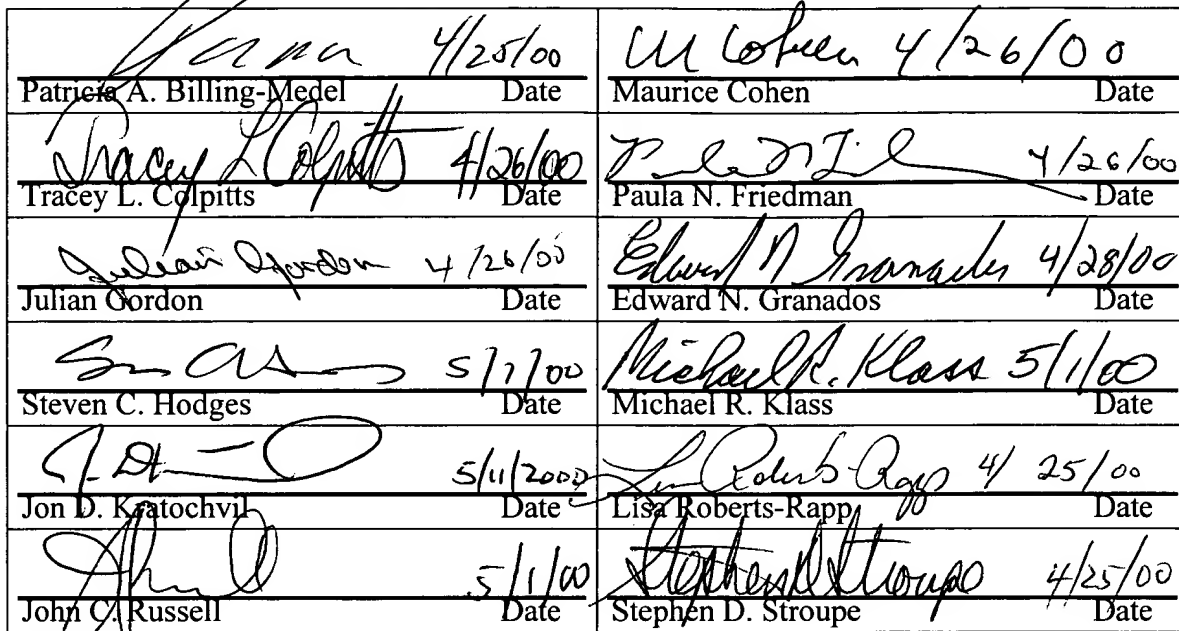 4/25/00
Patricia A. Billing-Medel Date
M Cohen 4/26/00
Maurice Cohen Date
Tracey L Colpitts 4/26/00
Tracey L. Colpitts Date
4/26/00
Paula N. Friedman Date
Julian Gordon 4/26/00
Julian Gordon Date
Edward N Granados 4/28/00
Edward N. Granados Date
5/1/00
Steven C. Hodges Date
Michael R. Klass 5/1/00
Michael R. Klass Date
5/11/2000
Jon D. Kratochvil Date
Lisa Roberts-Rapp 4/25/00
Lisa Roberts-Rapp Date
5/1/00
John C. Russell Date
Stephen D Stroupe 4/25/00
Stephen D. Stroupe Date